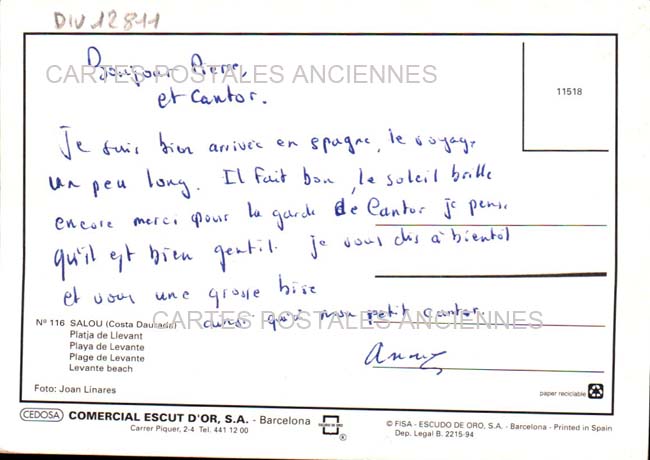 DIV 12811
Bonjour Pierre,
CARTES POSTALES ANCIENNES
et Cantor.
11518
Je suis bien arrivée en espagne, le voyage
un peu long. Il fait bon, le soleil brille
encore merci pour la garde de Cantor je pense
qu'il est bien gentil. je vous dis à bientôt
et vous une grosse bise
ainsi qu'à mon petit Cantor.
CARTES POSTALES ANCIENNES
Anny
Nº 116 SALOU (Costa Daurada)
Platja de Llevant
Playa de Levante
Plage de Levante
Levante beach
Foto: Joan Linares
paper reciclable
CEDOSA COMERCIAL ESCUT D'OR, S.A. - Barcelona
Carrer Piquer, 2-4 Tel. 441 12 00
ESCUDO DE ORO
®
© FISA - ESCUDO DE ORO, S.A. - Barcelona - Printed in Spain
Dep. Legal B. 2215-94